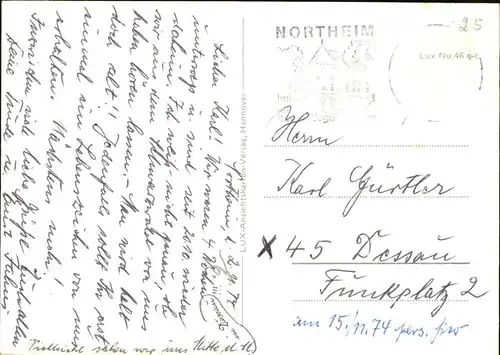 Northeim, d. 2.11.74
Lieber Karl! Wir waren 4 Wochen
unterwegs u. sind seit 20.10. wieder
daheim. Ich weiß nicht genau, ob
wir aus dem Hunsrückwald von uns
haben hören lassen. – Man wird halt
doch alt!! Jedenfalls sollt Ihr erst
einmal ein Lebenszeichen von uns
erhalten. Nächstens mehr!
Inzwischen viele liebe Grüße Euch allen
Deine Trude u. Ernst
Vielleicht sehen wir uns Mitte d. M.
LUX-Ansichtskarten-Verlag, Hannover
NORTHEIM
Lux-Nr. 46 g-c
25
Herrn
Karl Gürtler
X 45 Dessau
Funkplatz 2
am 15./11.74 pers.